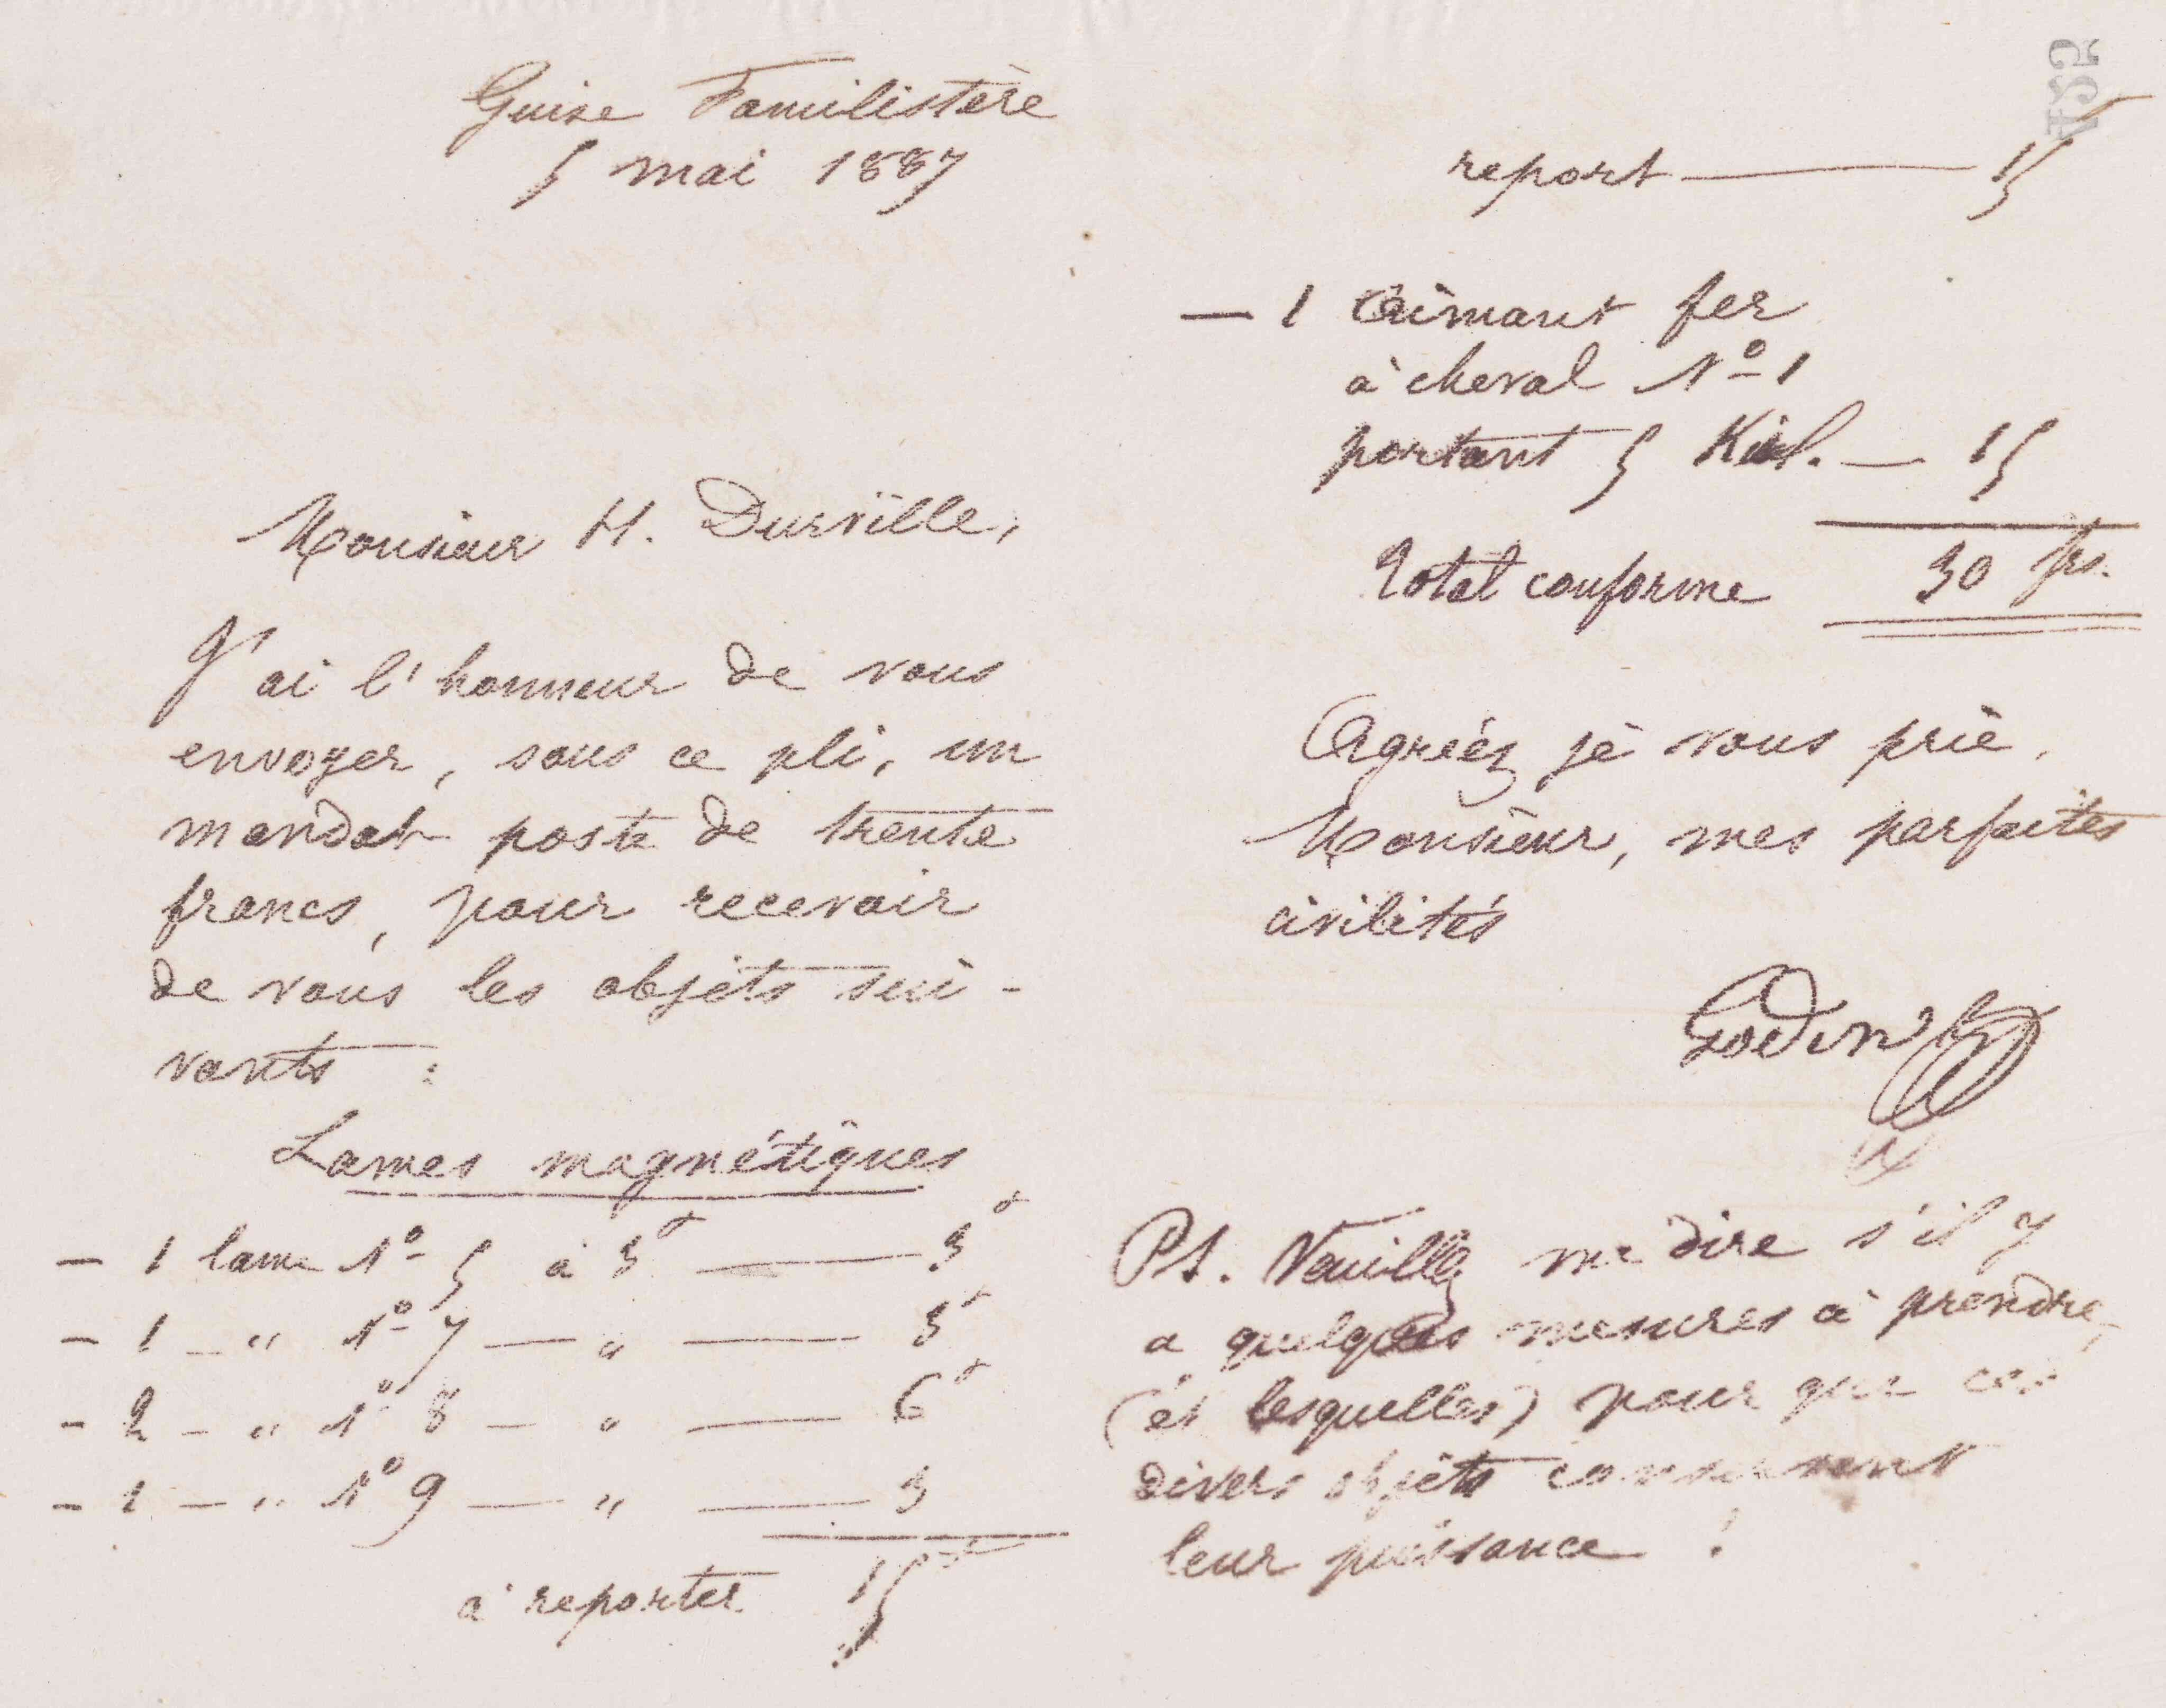 Guise Familistère
5 mai 1887
Monsieur H. Durville,
J'ai l'honneur de vous
envoyer, sous ce pli, un
mandat poste de trente
francs, pour recevoir
de vous les objets sui-
vants :
Lames magnétiques
- 1 lame Nº 5 à 3f — 3f
- 1 - " Nº 7 — " — 3f
- 2 - " Nº 8 — " — 6f
- 1 - " Nº 9 — " — 3
à reporter 15f
455
report — 15
- 1 Aimant fer
à cheval Nº 1
portant 5 Kil. — 15
Total conforme 30 frs.
Agréez je vous prie,
Monsieur, mes parfaites
civilités
Godin
PS. Veuillez me dire s'il y
a quelques mesures à prendre,
(et lesquelles) pour que ces
divers objets conservent
leur puissance !